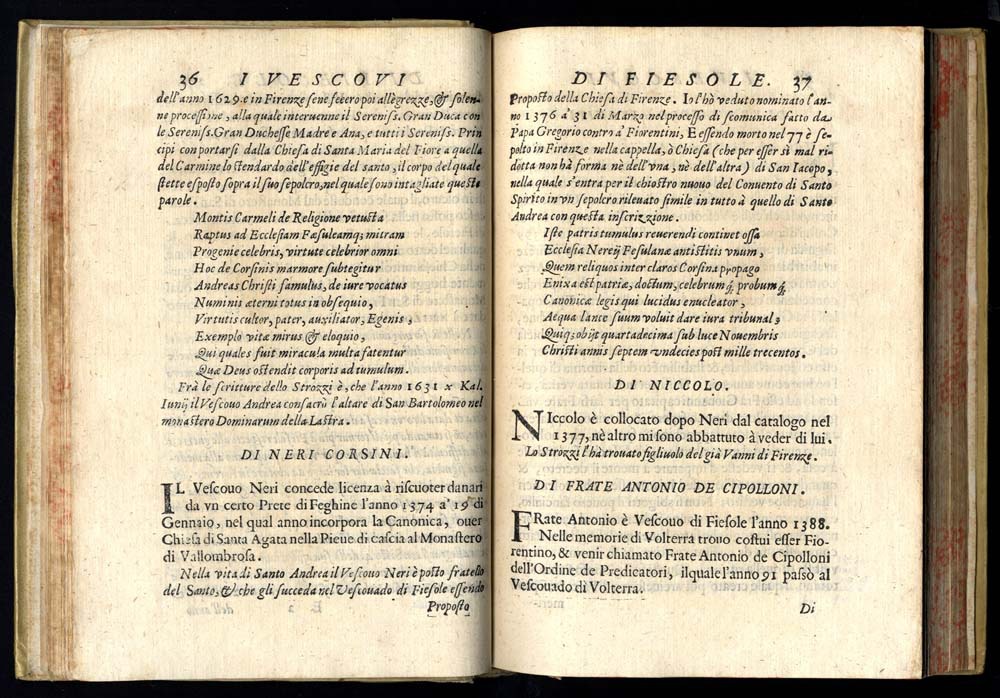 36 I VESCOVI
dell'anno 1629. e in Firenze sene fecero poi allegrezze, & solen-
ne processione, alla quale interuenne il Sereniss. Gran Duca con
le Sereniss. Gran Duchesse Madre e Ana, e tutti i Sereniss. Prin
cipi con portarsi dalla Chiesa di Santa Maria del Fiore a quella
del Carmine lo stendardo dell'effigie del santo, il corpo del quale
stette esposto sopra il suo sepolcro, nel quale sono intagliate queste
parole.
Montis Carmeli de Religione vetusta
Raptus ad Ecclesiam Fæsuleamq; mitram
Progenie celebris, virtute celebrior omni
Hoc de Corsinis marmore subtegitur
Andreas Christi famulus, de iure vocatus
Numinis æterni totus in obsequio,
Virtutis cultor, pater, auxiliator, Egenis,
Exemplo vitæ mirus & eloquio,
Qui quales fuit miracula multa fatentur
Quæ Deus ostendit corporis ad tumulum.
Frà le scritture dello Strozzi è, che l'anno 1631 x Kal.
Iunij il Vescouo Andrea consacrò l'altare di San Bartolomeo nel
monastero Dominarum della Lastra.
DI NERI CORSINI.
IL Vescouo Neri concede licenza à riscuoter danari
da vn certo Prete di Feghine l'anno 1374 a' 19 di
Gennaio, nel qual anno incorpora la Canonica, ouer
Chiesa di Santa Agata nella Pieue di cascia al Monastero
di Vallombrosa.
Nella vita di Santo Andrea il Vescouo Neri è posto fratello
del Santo, & che gli succeda nel Vescouado di Fiesole essendo
Proposto
DI FIESOLE. 37
Proposto della Chiesa di Firenze. Io l'hò veduto nominato l'an-
no 1376 a' 31 di Marzo nel processo di scomunica fatto da
Papa Gregorio contro a' Fiorentini, E essendo morto nel 77 è se-
polto in Firenze nella cappella, ò Chiesa (che per esser sì mal ri-
dotta non hà forma nè dell'vna, nè dell'altra) di San Iacopo,
nella quale s'entra per il chiostro nuouo del Conuento di Santo
Spirito in vn sepolcro rileuato simile in tutto à quello di Santo
Andrea con questa inscrizzione.
Iste patris tumulus reuerendi continet ossa
Ecclesia Nereij Fesulanæ antistitis vnum,
Quem reliquos inter claros Corsina propago
Enixa est patriæ, doctum, celebrum q; probum q;
Canonicæ legis qui lucidus enucleator,
Aequa lance suum voluit dare iura tribunal,
Quiq; obijt quartadecima sub luce Nouembris
Christi annis septem vndecies post mille trecentos.
DI NICCOLO.
NIccolo è collocato dopo Neri dal catalogo nel
1377, nè altro mi sono abbattuto à veder di lui.
Lo Strozzi l'hà trouato figliuolo del già Vanni di Firenze.
DI FRATE ANTONIO DE CIPOLLONI.
FRate Antonio è Vescouo di Fiesole l'anno 1388.
Nelle memorie di Volterra trouo costui esser Fio-
rentino, & venir chiamato Frate Antonio de Cipolloni
dell'Ordine de Predicatori, il quale l'anno 91 passò al
Vescouado di Volterra.
Di